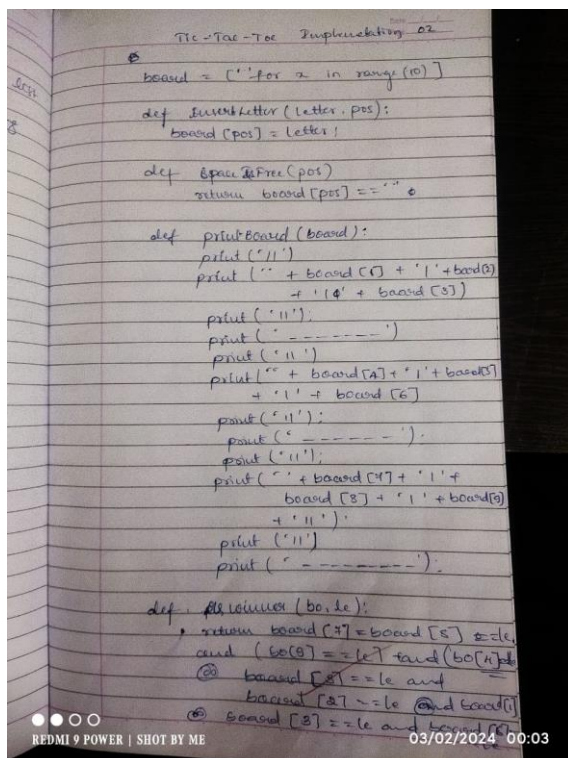 Tic-Tac-Toe Implementation 02
board = [' 'for x in range(10)]
def InsertLetter (letter, pos):
board [pos] = letter;
def SpaceIsFree (pos)
return board [pos] == ' '
def printBoard (board):
print ('||')
print (" + board [1] + '|' + board(2)
+ '|' + board [3])
print ('||');
print ('-------')
print ('||')
print (" + board [4] + '|' + board[5]
+ '|' + board [6]
print ('||');
print ('------');
print ('||');
print (' ' + board [7] + '|' +
board [8] + '|' + board[9]
+ '||').
print ('||']
print ('---------');
def Iswinner (bo, le):
return board [7] = board [8] ==le,
and (bo[9] ==le] and (bo[4]
board [5] ==le and
board [2] ==le and board[1]
board [3] ==le and board [6]
REDMI 9 POWER | SHOT BY ME
03/02/2024 00:03